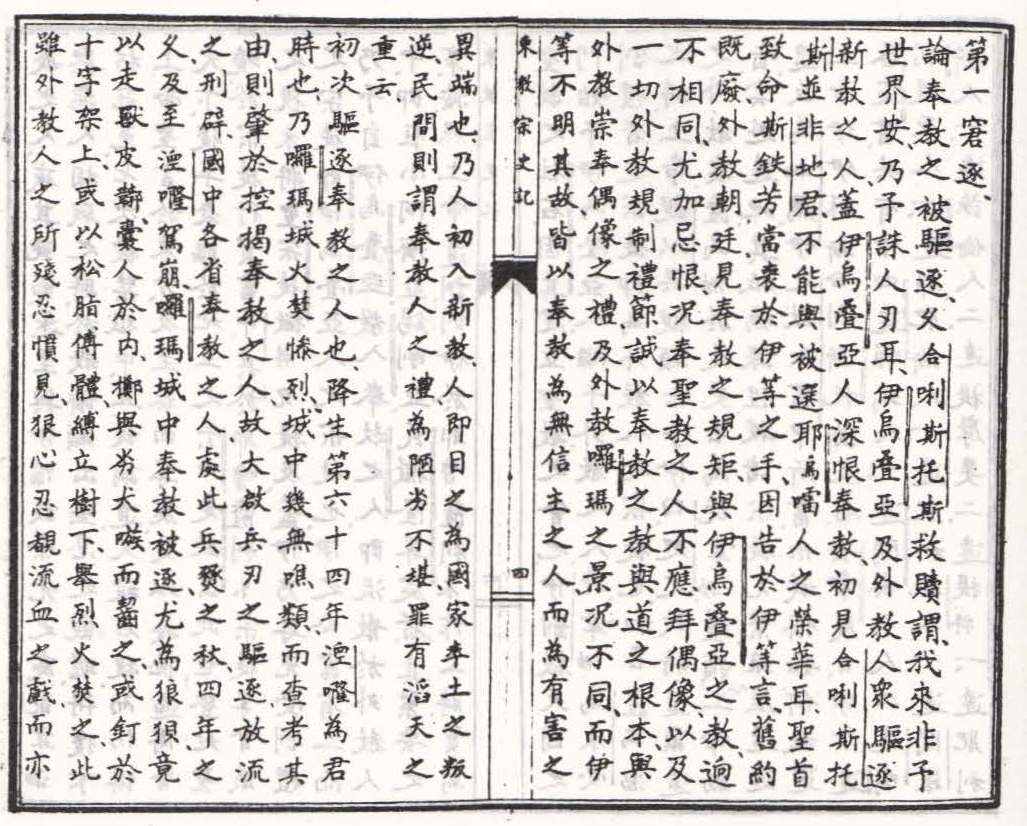 第一窘逐、
論奉教之被驅逐、乂合唎斯托斯救贖謂、我來非予
世界安、乃予誅人刃耳、伊烏疊亞及外教人衆、驅逐
新教之人、蓋伊烏疊亞人深恨奉教、初見合唎斯托
斯並非地君、不能與被選耶烏噹人之榮華耳、聖首
致命斯鉄芳、當喪於伊等之手、因告於伊等言、舊約
既廢、外教朝廷見奉教之規矩、與伊烏疊亞之教、迥
不相同、尤加忌恨、况奉聖教之人不應拜偶像、以及
一切外教規制禮節、誠以奉教之教與道之根本與
外教崇奉偶像之禮、及外教囉瑪之景况不同、而伊
等不明其故、皆以奉教為無信主之人、而為有害之
東教宗史記 四
異端也、乃人初入新教、人即目之為國家率土之叛
逆、民間則謂奉教人之禮為陋劣不堪、罪有滔天之
重云、
初次驅逐奉教之人也、降生第六十四年、湮嚁為君
時也、乃囉瑪城火焚慘烈、城中幾無噍類、而查考其
由、則肇於控揭奉教之人、故大啟兵刃之驅逐放流
之刑辟、國中各省奉教之人、處此兵燹之秋、四年之
乂、及至湮嚁駕崩、囉瑪城中奉教被逐、尤為狼狽、竟
以走獸皮鞹、囊人於內、擲與劣犬嗾而齧之、或釘於
十字架上、或以松脂傅體、縛立樹下、舉烈火焚之、此
雖外教人之所殘忍慣見、狠心忍覩流血之戲、而亦